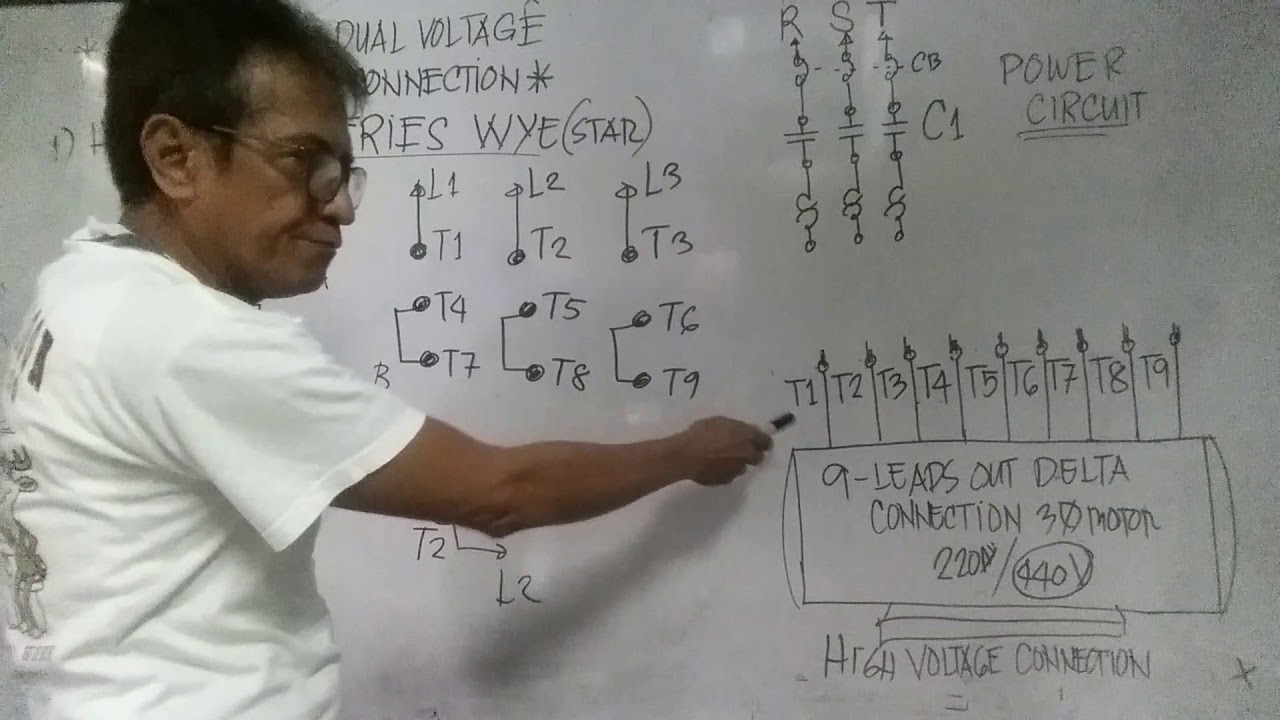 DUAL VOLTAGE
CONNECTION *
1) H
ERIES WYE (STAR)
L1 L2 L3
T1 T2 T3
T4 T5 T6
T7 T8 T9
T2
L2
R S T
CB
C1
POWER
CIRCUIT
T1 T2 T3 T4 T5 T6 T7 T8 T9
9-LEADS OUT DELTA
CONNECTION 3Ø MOTOR
220V/440V
HIGH VOLTAGE CONNECTION